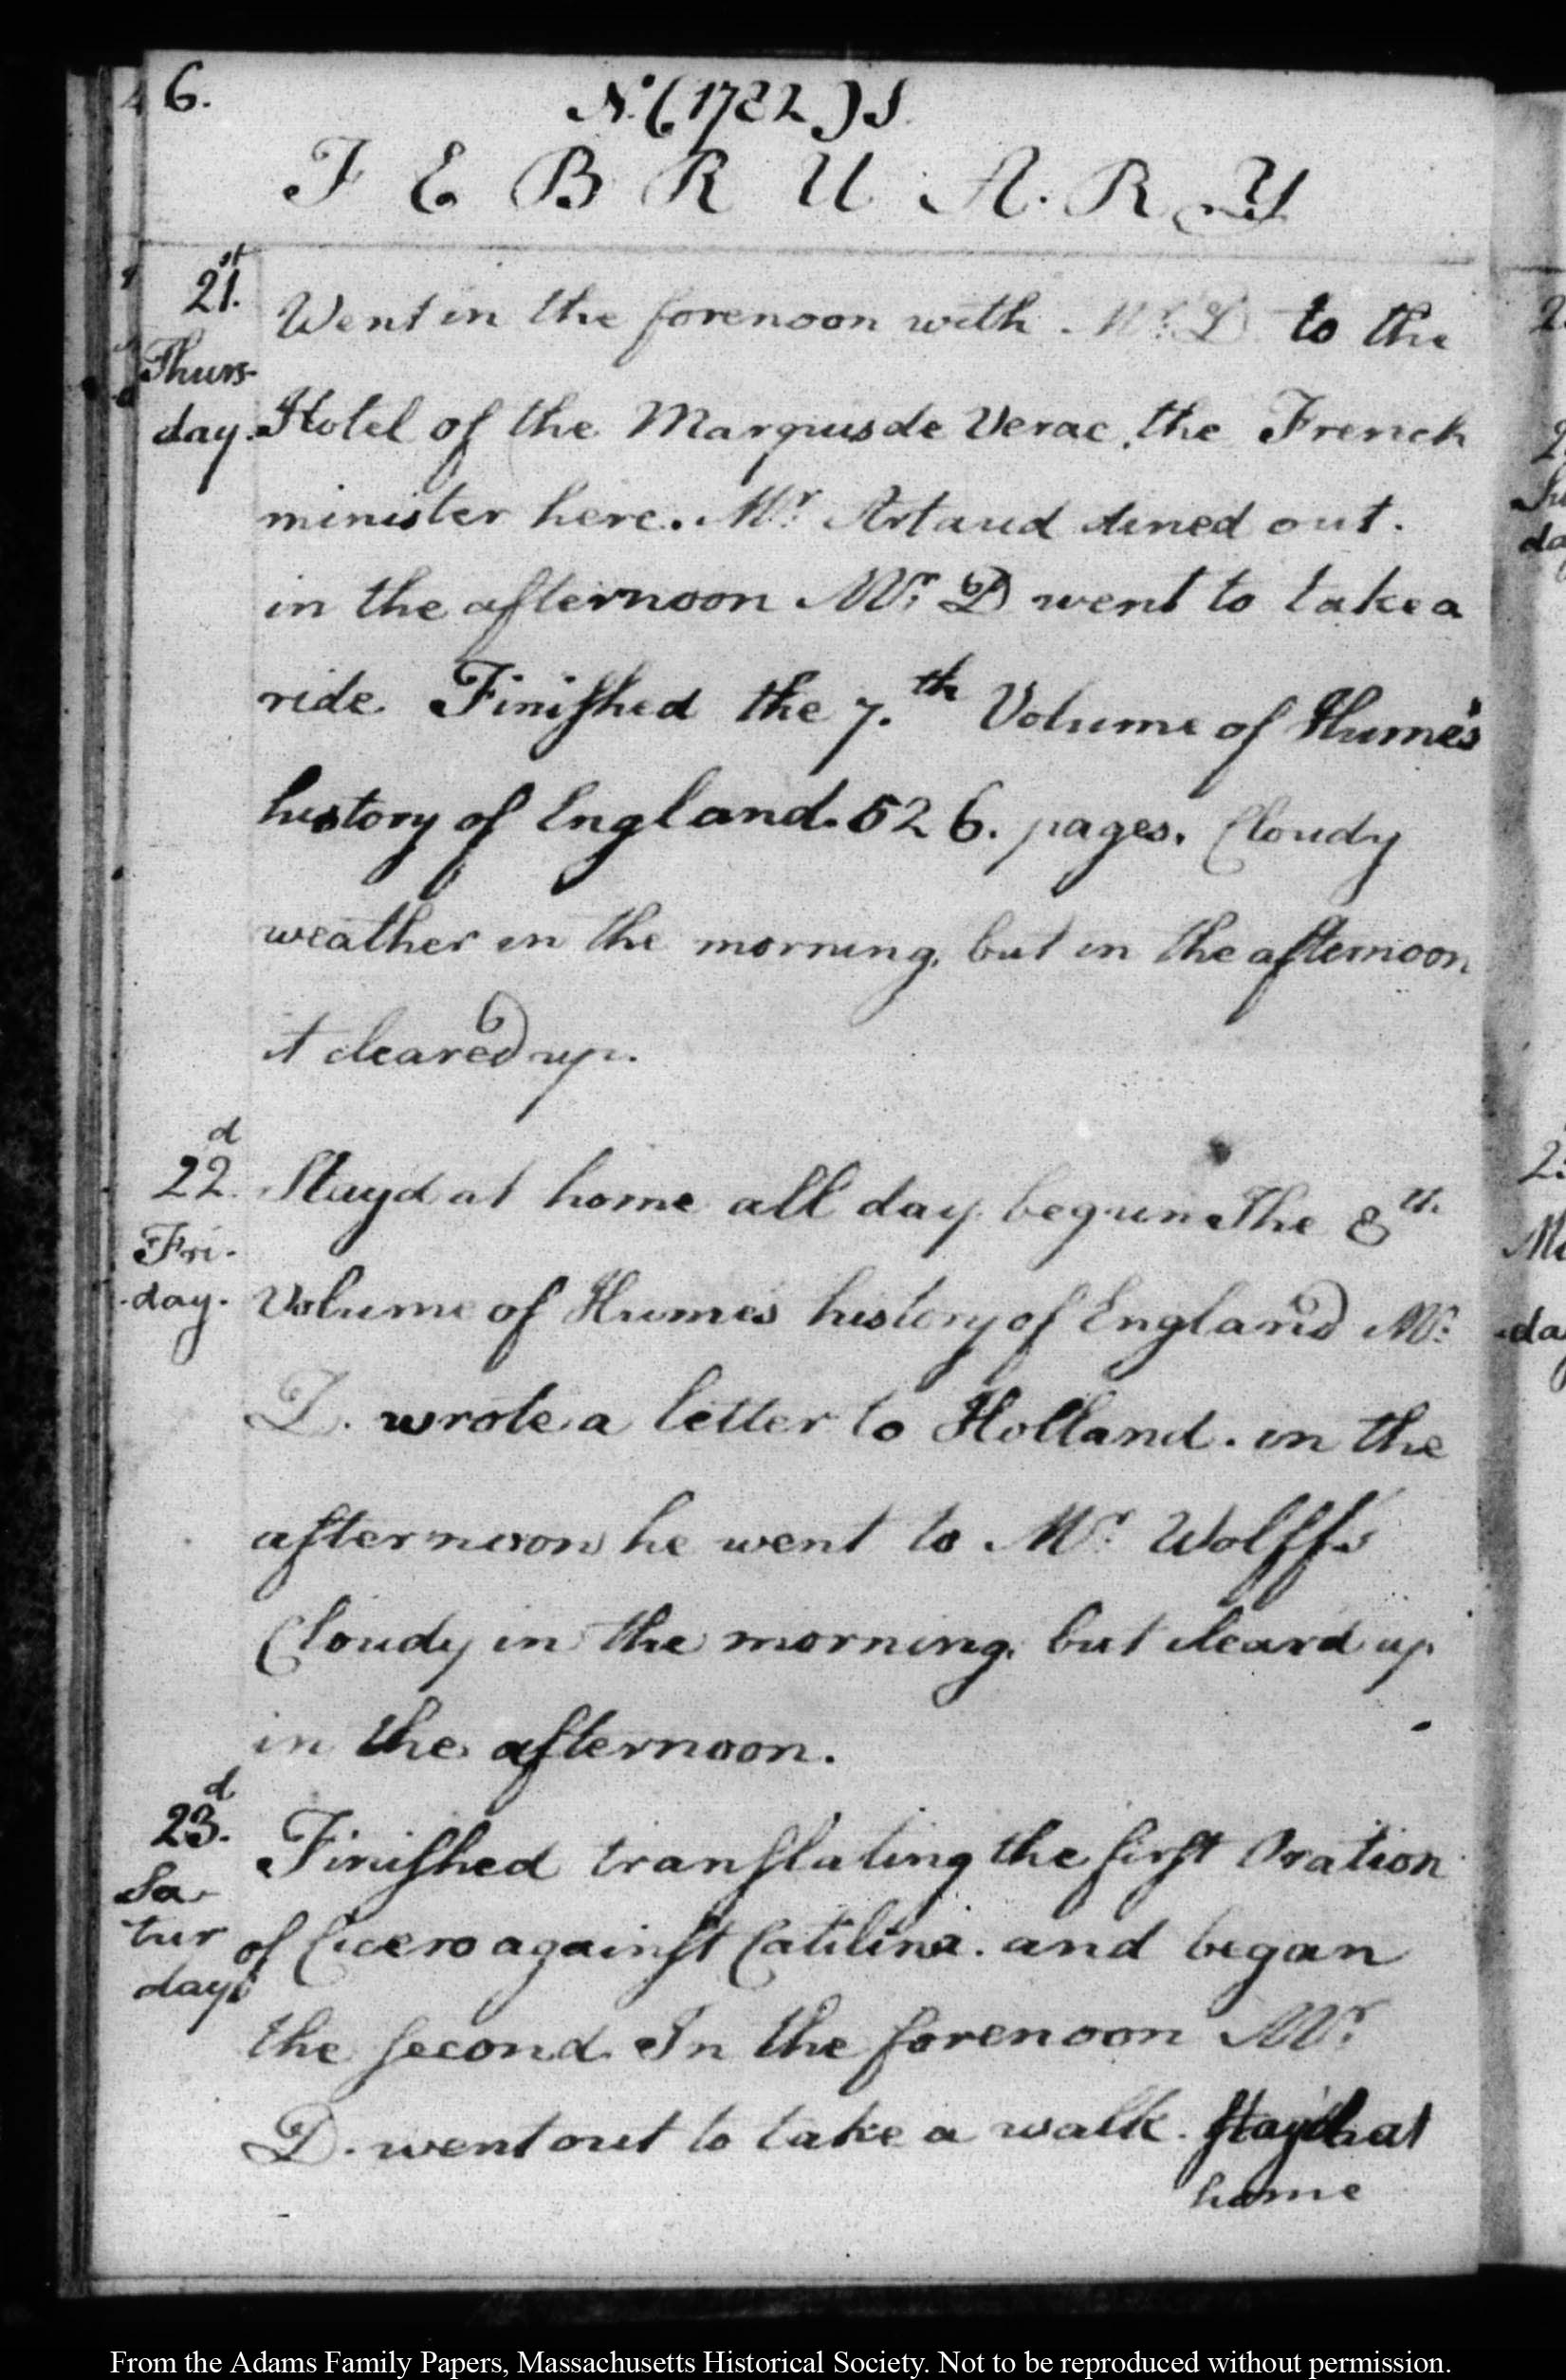 6.
N.º (1782) S.
FEBRUARY
21.st Went in the forenoon with Mr. D to the
Thurs-
day. Hotel of the Marquis de Verac, the French
minister here. Mr. Artaud dined out.
in the afternoon Mr. D went to take a
ride. Finished the 7.th Volume of Hume's
history of England. 526. pages. Cloudy
weather in the morning, but in the afternoon
it cleared up.
22.d Stayd at home all day. begun The 8th
Fri-
-day. Volume of Hume's history of England Mr.
D. wrote a letter to Holland. in the
afternoon he went to Mr. Wolff's
Cloudy in the morning, but cleard up
in the afternoon.
23.d Finished translating the first Oration
Sa-
tur of Cicero against Catilina. and began
day
the second. In the forenoon Mr.
D. went out to take a walk. Stayd at
home
From the Adams Family Papers, Massachusetts Historical Society. Not to be reproduced without permission.